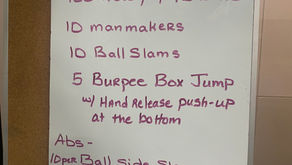 10 manmakers
10 Ball Slams
5 Burpee Box Jump
w/ Hand Release push-up
at the bottom
Abs-
10 per Ball Side